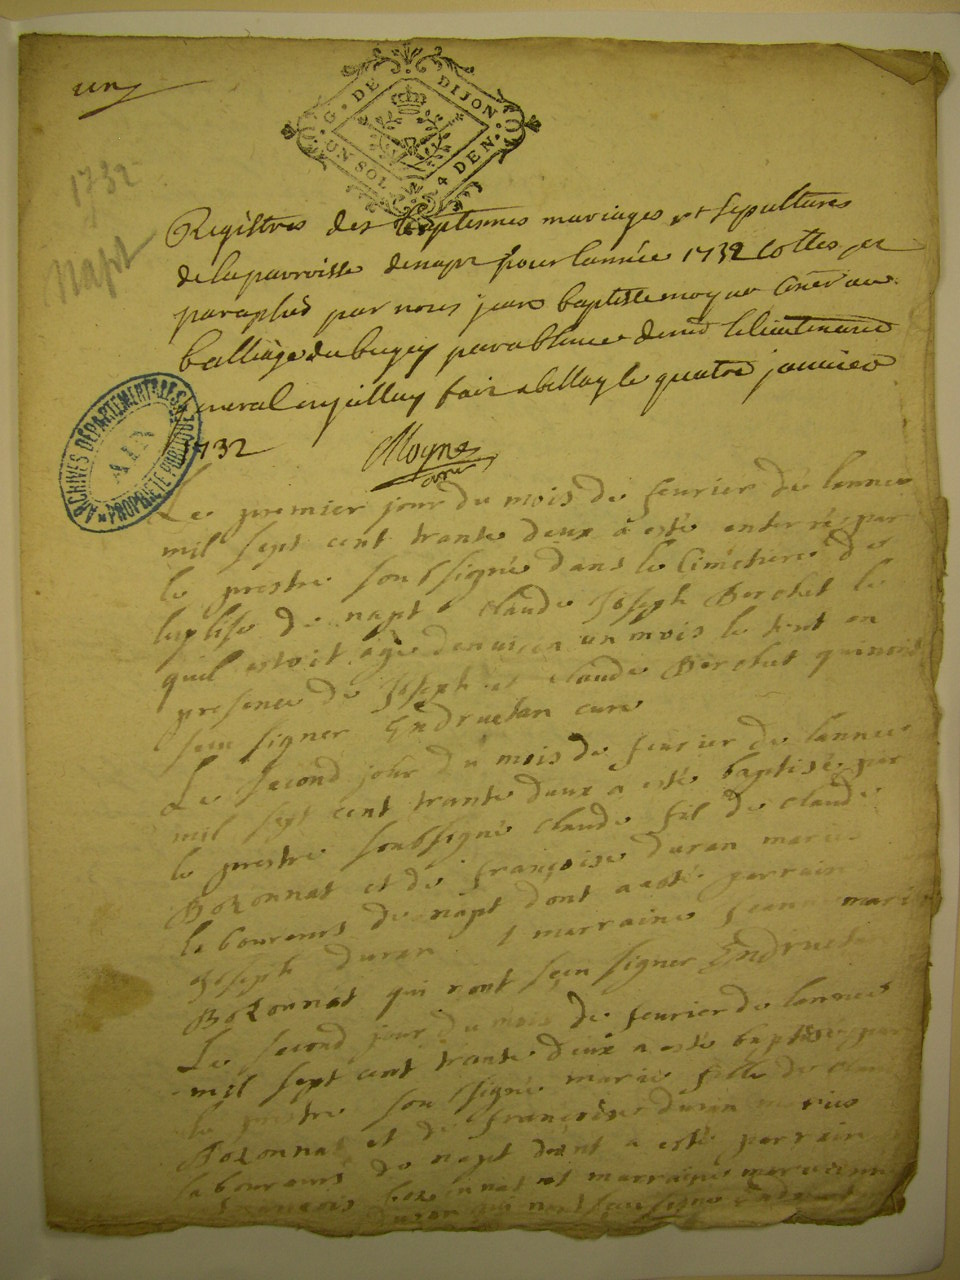 un
G. DE DIJON
UN SOL 4 DEN.
1732
Napt
Registres des Baptesmes mariages et sepultures
de la parroisse de napt pour l'année 1732 Cottes et
paraphés par nous jean baptiste moyne
balliage du bugey par absence de le lieutenant
fait a bellay le quatre janvier
1732
Moyne
ARCHIVES DÉPARTEMENTALES
AIN
PROPRIÉTÉ PUBLIQUE
Le premier jour du mois de feurier de lannee
mil sept cent trante deux à esté enterré par
le prestre soubsigné dans le Cimetiere de
leglise de napt claude Joseph Berchet le
quil estoit agé denuiron un mois le tout en
presence de Joseph et claude Berchet qui nont
sceu signer Endruetan curé
Le second jour du mois de feurier de lannee
mil sept cent trante deux a esté baptisé par
le prestre soubsigné claude fil de claude
Bozonnat et de françoise duran mariés
laboureurs de napt dont a esté parrain
Joseph duran et marraine Jeanne marie
Bozonnat qui nont sceu signer Endruetan
Le second jour du mois de feurier de lannee
mil sept cent trante deux a esté baptisée par
le prestre soubsigné marie fille de claude
Bozonnat et de françoise duran mariés
laboureurs de napt dont a esté parrain
françois bozonnat et marraine
duran qui nont sceu signer